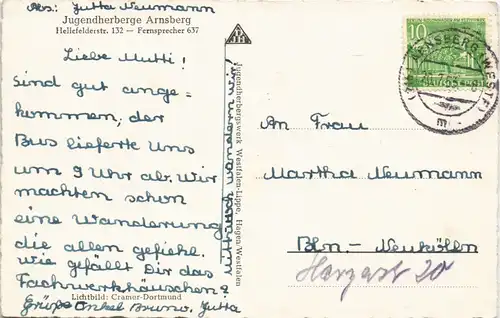 Abs: Jutta Neumann
Jugendherberge Arnsberg
Hellefelderstr. 132 — Fernsprecher 637
Liebe Mutti!
Sind gut ange-
kommen; der
Bus lieferte Uns
um 9 Uhr ab. Wir
machten schon
eine Wanderung
die allen gefiehl.
Wie gefällt Dir das
Fachwerkhäuschen?
Lichtbild: Cramer-Dortmund
Grüße Onkel Bruno. Jutta
Mittwoch wandern wir!
DJH
Jugendherbergswerk Westfalen-Lippe, Hagen/Westfalen
10
ARNSBERG (WESTF)
An Frau
Martha Neumann
Bln.- Neukölln